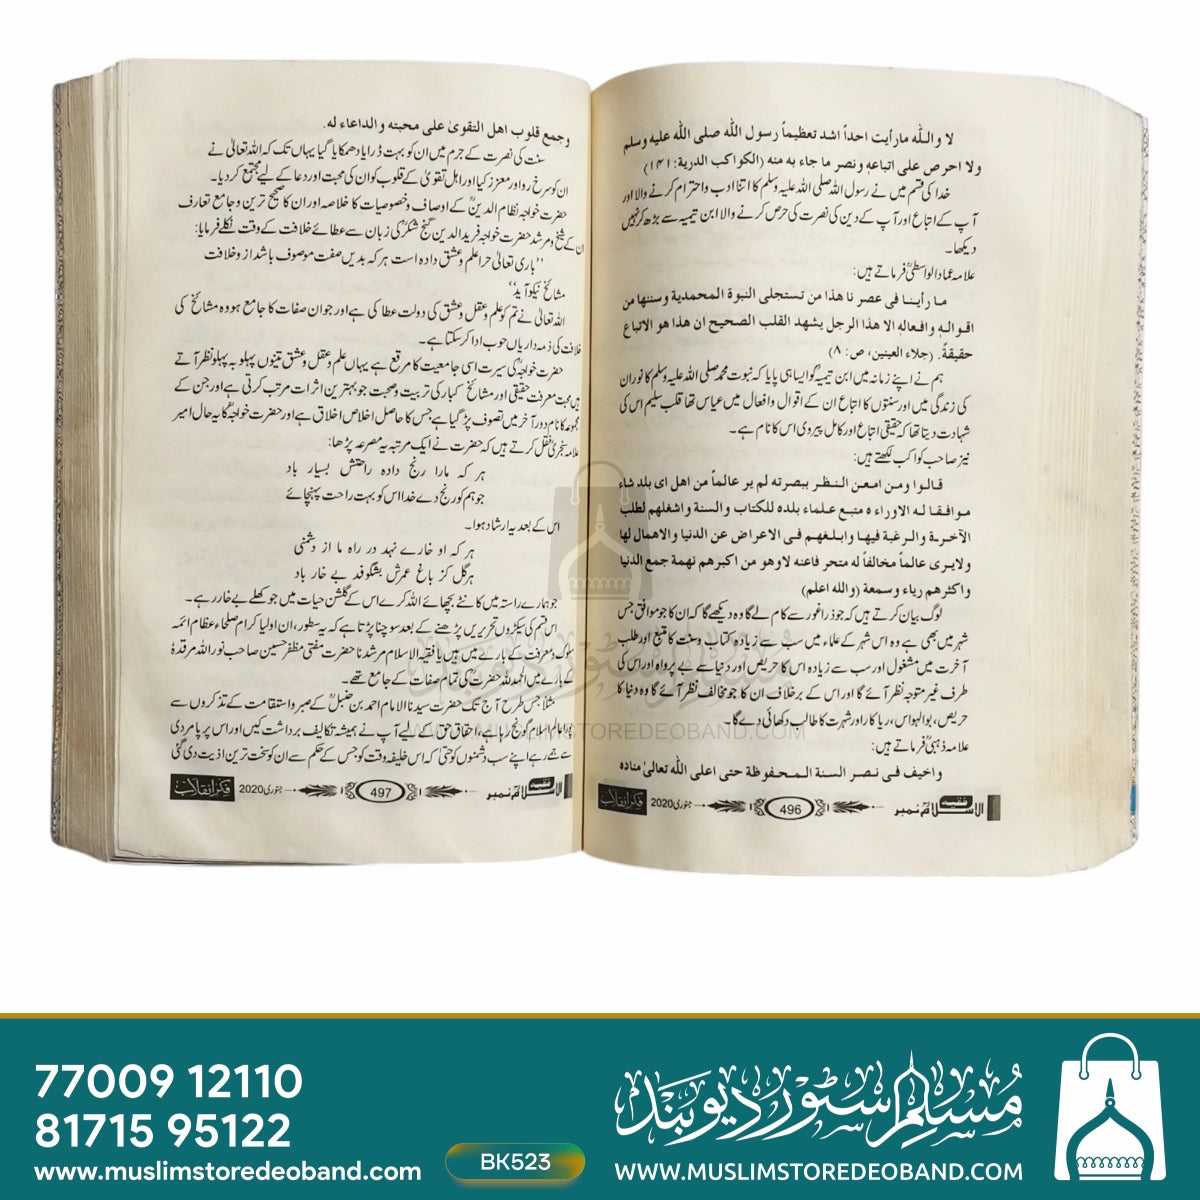 لا والله مارأيت احداً اشد تعظيماً رسول الله صلى الله عليه وسلم
ولا احرص على اتباعه ونصر ما جاء به منه (الكواكب الدرية: ١٤١)
خدا کی قسم میں نے رسول اللہ صلی اللہ علیہ وسلم کا اتنا ادب واحترام کرنے والا اور
آپ کے اتباع اور آپ کے دین کی نصرت کی حرص کرنے والا ابن تیمیہ سے بڑھ کر نہیں
دیکھا۔
علامہ عماد الواسطیؒ فرماتے ہیں:
ما رأينا فى عصر نا هذا من تستجلى النبوة المحمدية وسننها من
اقواله وافعاله الا هذا الرجل يشهد القلب الصحيح ان هذا هو الاتباع
حقيقةً. (جلاء العينين، ص: ٨)
ہم نے اپنے زمانہ میں ابن تیمیہؒ کو ایسا ہی پایا کہ نبوت محمد صلی اللہ علیہ وسلم کا نور ان
کی زندگی میں اور سنتوں کا اتباع ان کے اقوال وافعال میں عیاں تھا قلب سلیم اس کی
شہادت دیتا تھا کہ حقیقی اتباع اور کامل پیروی اس کا نام ہے۔
نیز صاحب کواکب لکھتے ہیں:
قالوا ومن امعن النظر ببصرته لم ير عالماً من اهل اى بلد شاء
موافقا له الاوراء ه متبع علماء بلده للكتاب والسنة واشغلهم لطلب
الآخرة والرغبة فيها وابلغهم فى الاعراض عن الدنيا والاهمال لها
ولايرى عالماً مخالفاً له متحر فاعنه لاوهو من اكبرهم نهمة جمع الدنيا
واكثرهم رياء وسمعة (والله اعلم)
لوگ بیان کرتے ہیں کہ جو ذرا غور سے کام لے گا وہ دیکھے گا کہ ان کا جو موافق جس
شہر میں بھی ہے وہ اس شہر کے علماء میں سب سے زیادہ کتاب وسنت کا متبع اور طلب
آخرت میں مشغول اور سب سے زیادہ اس کا حریص اور دنیا سے بے پرواہ اور اس کی
طرف غیر متوجہ نظر آئے گا اور اس کے برخلاف ان کا جو مخالف نظر آئے گا وہ دنیا کا
حریص، بوالہواس، ریاکار اور شہرت کا طالب دکھائی دے گا۔
علامہ ذہبیؒ فرماتے ہیں:
واخيف فى نصر السنة المحفوظة حتى اعلى الله تعالىٰ مناده
فقیہ الاسلامؒ نمبر 496 جنوری 2020 فکر انقلاب
وجمع قلوب اهل التقوىٰ على محبته والداعاء له.
سنت کی نصرت کے جرم میں ان کو بہت ڈرایا دھمکایا گیا یہاں تک کہ اللہ تعالیٰ نے
ان کو سرخ رو اور معزز کیا اور اہل تقویٰ کے قلوب کو ان کی محبت اور دعا کے لیے مجتمع کر دیا۔
حضرت خواجہ نظام الدینؒ کے اوصاف وخصوصیات کا خلاصہ اور ان کا صحیح ترین وجامع تعارف
ان کے شیخ ومرشد حضرت خواجہ فریدالدین گنج شکرؒ کی زبان سے عطائے خلافت کے وقت نکلے فرمایا:
’’باری تعالیٰ حرا علم وعشق دادہ است ہر کہ بدیں صفت موصوف باشد از وخلافت
مشائخ نیکو آید‘‘
اللہ تعالیٰ نے تم کو علم وعقل وعشق کی دولت عطا کی ہے اور جو ان صفات کا جامع ہو وہ مشائخ کی
خلافت کی ذمہ داریاں خوب ادا کر سکتا ہے۔
حضرت خواجہؒ کی سیرت اسی جامعیت کا مرقع ہے یہاں علم وعقل وعشق تینوں پہلو بہ پہلو نظر آتے
ہیں محبت معرفت حقیقی اور مشائخ کبار کی تربیت وصحبت جو بہترین اثرات مرتب کرتی ہے اور جن کے
مجموعہ کا نام دور آخر میں تصوف پڑ گیا ہے جس کا حاصل اخلاص اخلاق ہے اور حضرت خواجہؒ کا یہ حال امیر
علاء سنجریؒ نقل کرتے ہیں کہ حضرت نے ایک مرتبہ یہ مصرعہ پڑھا:
ہر کہ مارا رنج دادہ راحتش بسیار باد
جو ہم کو رنج دے خدا اس کو بہت راحت پہنچائے
اس کے بعد یہ ارشاد ہوا۔
ہر کہ او خارے نہد در راہ ما از دشمنی
ہر گل کز باغ عمرش بشگوفد بے خار باد
جو ہمارے راستہ میں کانٹے بچھائے اللہ کرے اس کے گلشن حیات میں جو کھلے بے خار رہے۔
اس قسم کی سیکڑوں تحریریں پڑھنے کے بعد سوچنا پڑتا ہے کہ یہ سطور، ان اولیا کرام صلحاء عظام ائمہ
سلوک ومعرفت کے بارے میں ہیں یا فقیہ الاسلام مرشدنا حضرت مفتی مظفر حسین صاحب نور اللہ مرقدہٗ
کے بارے میں الحمد للہ حضرتؒ کی تمام صفات کے جامع تھے۔
مثلاً جس طرح آج تک حضرت سیدنا الامام احمد بن حنبلؒ کے صبر واستقامت کے تذکروں سے
پورا عالم اسلام گونج رہا ہے، احقاق حق کے لیے آپ نے ہمیشہ تکالیف برداشت کیں اور اس پر پامردی
سے جمے رہے اپنے سب دشمنوں کو حتی کہ اس خلیفۂ وقت کو جس کے حکم سے ان کو سخت ترین اذیت دی گئی
فقیہ الاسلامؒ نمبر 497 جنوری 2020 فکر انقلاب
مسلم سٹور دیوبند
WWW.MUSLIMSTOREDEOBAND.COM
77009 12110
81715 95122
www.muslimstoredeoband.com
BK523
مسلم سٹور دیوبند
WWW.MUSLIMSTOREDEOBAND.COM